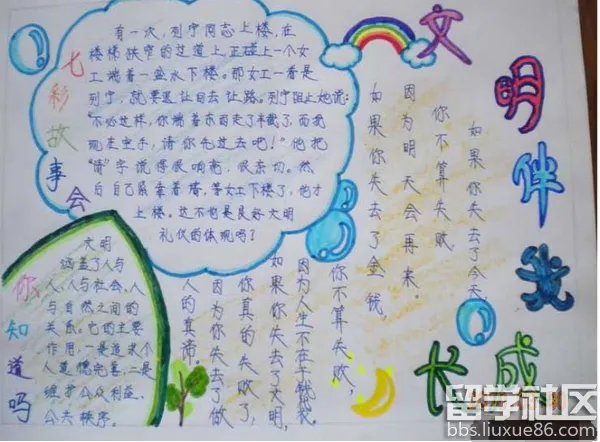 文明伴我成长
七彩故事会
有一次，列宁同志上楼，在
楼梯狭窄的过道上，正碰上一个女
工端着一盆水下楼。那女工一看是
列宁，就要退让自去让路。列宁阻止她说：
"不必这样，你端着东西走了半截了，而我
现在空手，请你先过去吧！"他把
"请"字说得很响亮，很亲切。然
自自己紧靠着墙，等女工下楼了，他才
上楼。这不也是良好文明
礼仪的体现吗？
你知道吗
文明
涵盖了人与
人、人与社会、人
与自然之间的
关系。它的主要
作用，一是追求个
人道德完善，二是
维护公众利益、
公共秩序。
如果你失去了今天，
你不算失败，
因为明天会再来。
如果你失去了金钱，
你不算失败，
因为人生不在于钱袋。
如果你失去了文明，
你真的失败，
因为你失去了做
人的真谛。
留学社区
bbs.liuxue86.com